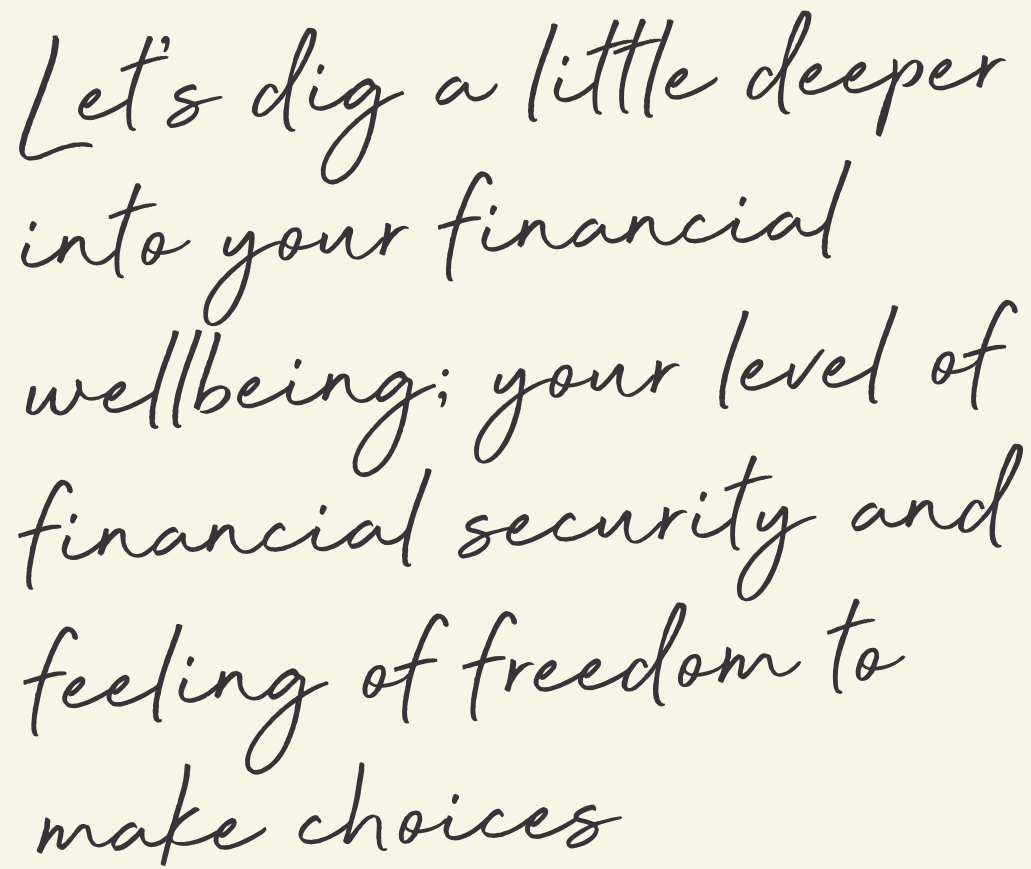 Let's dig a little deeper
into your financial
wellbeing; your level of
financial security and
feeling of freedom to
make choices